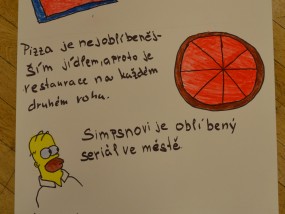 Pizza je nejoblíbeněj-
ším jídlem, a proto je
restaurace na každém
druhém rohu.
Simpsnovi je oblíbený
seriál ve městě